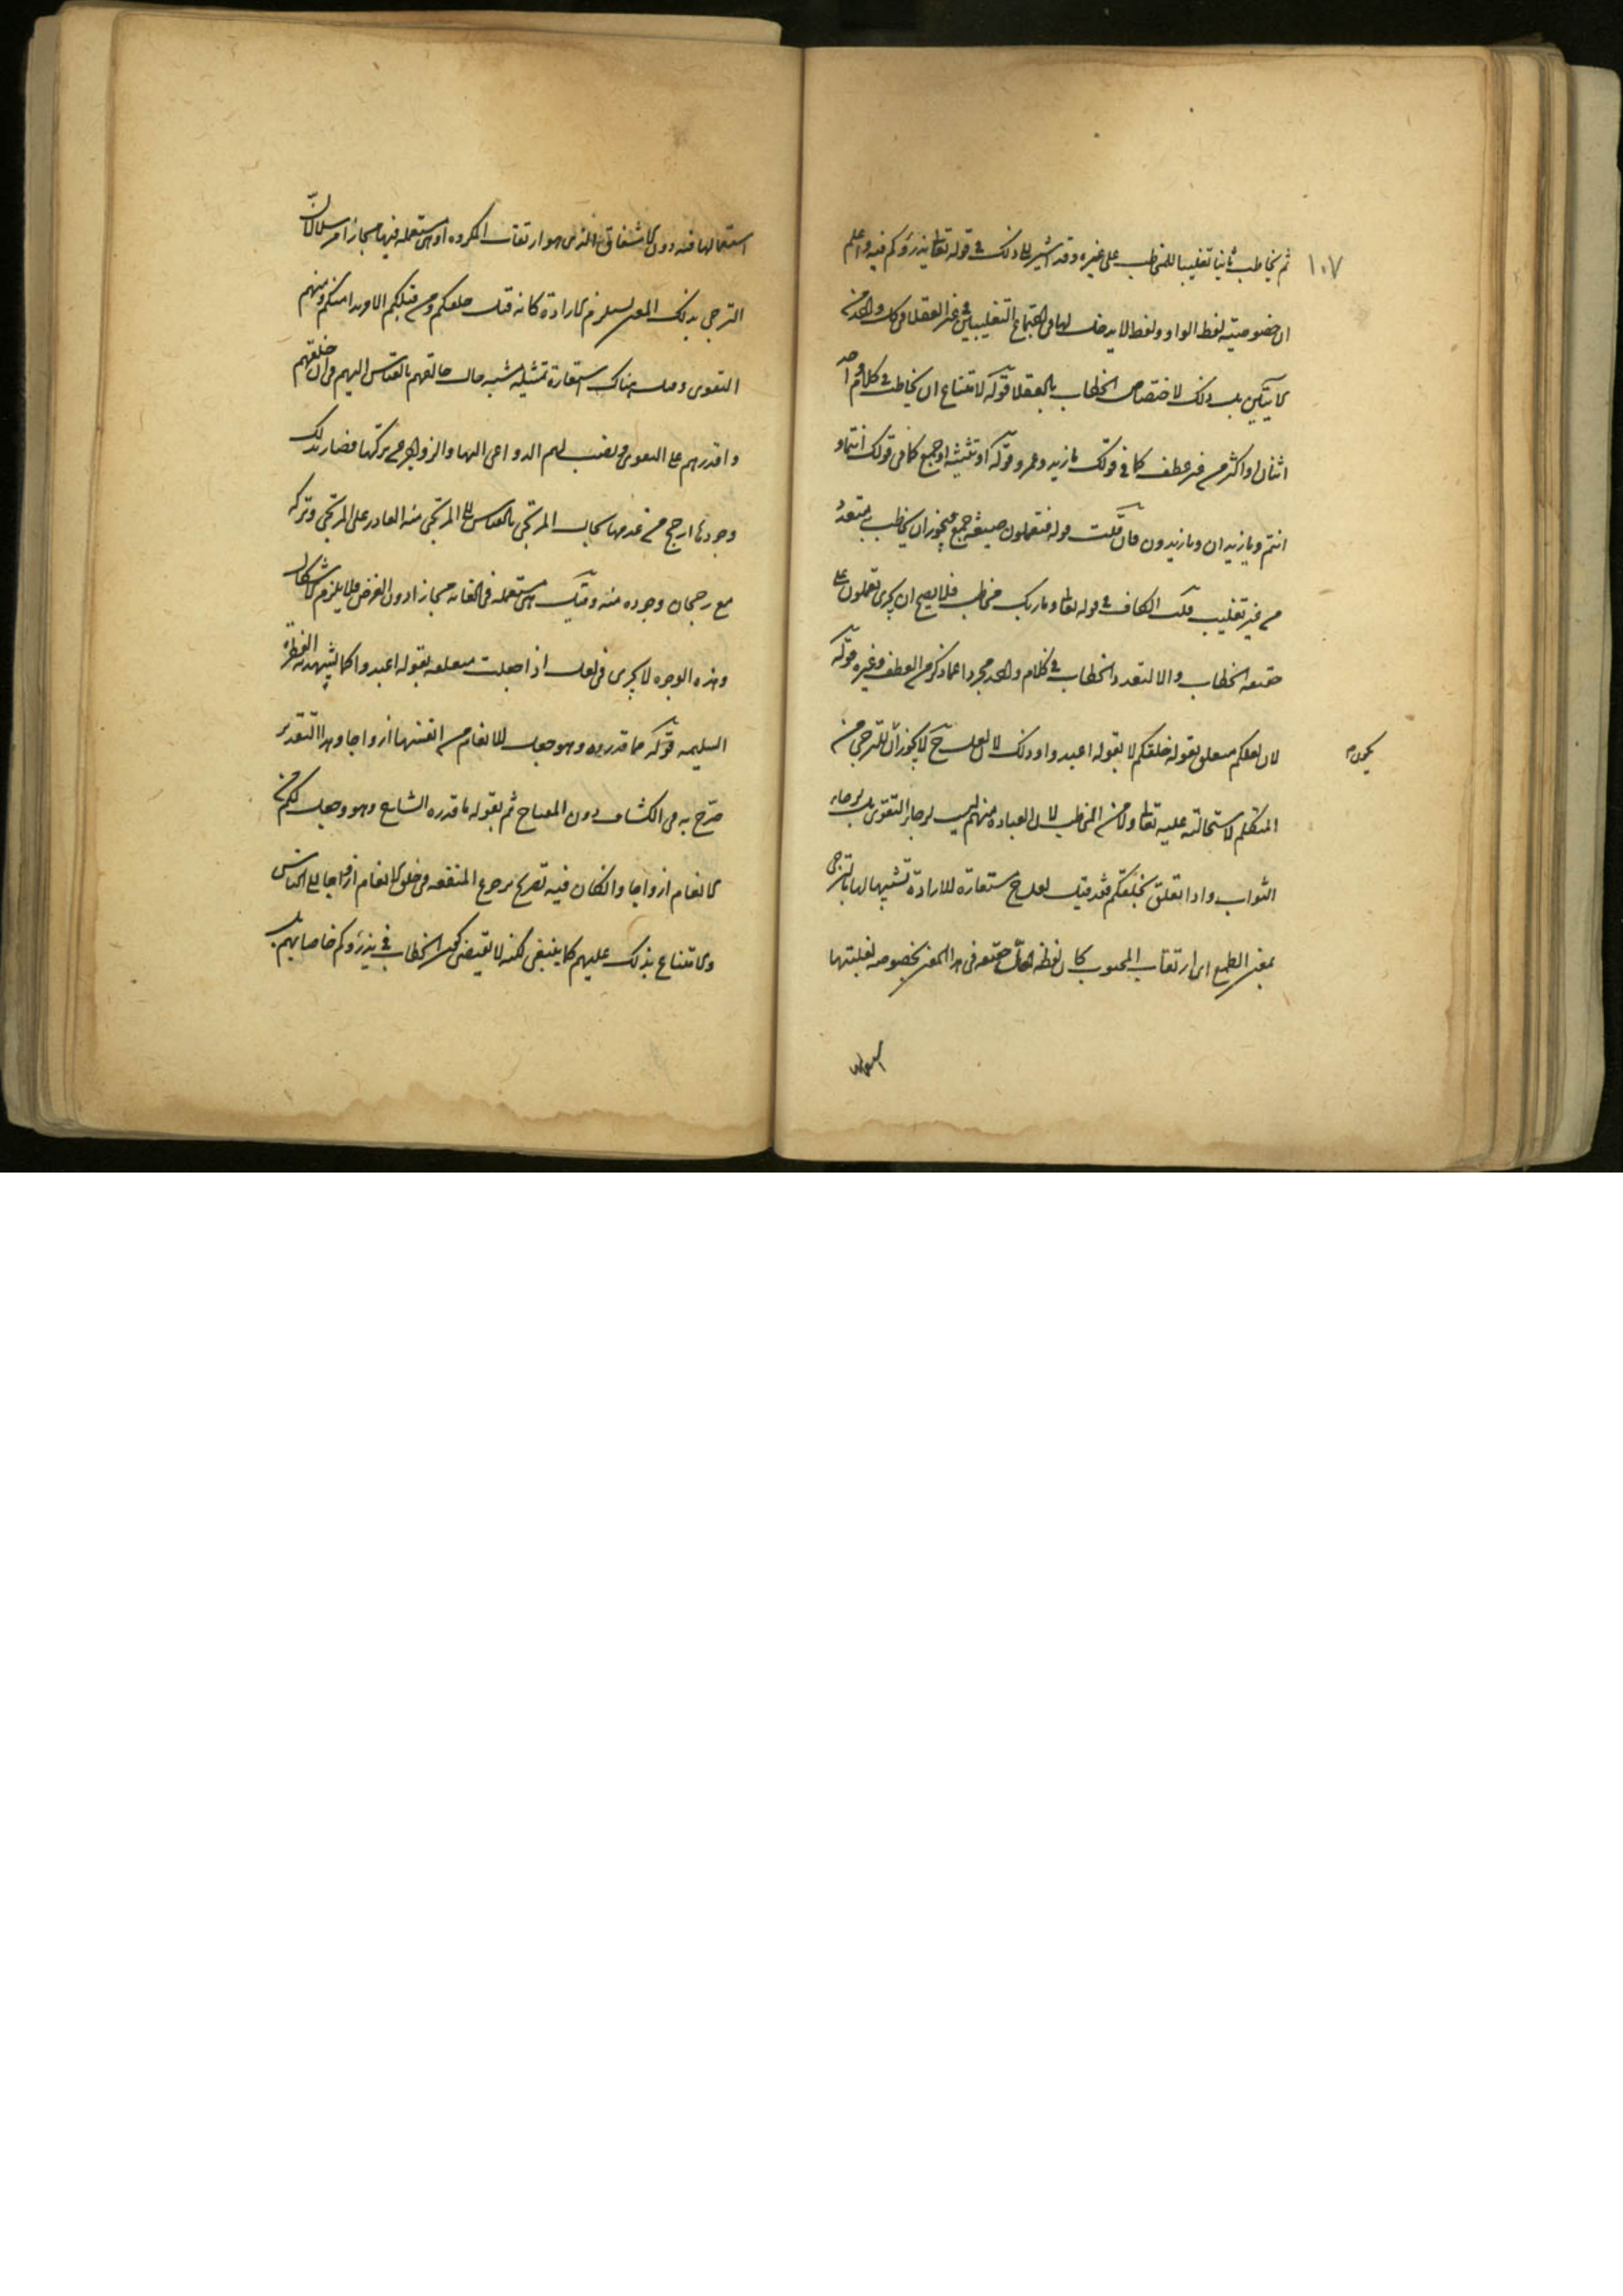 ١٠٧
ثم يخاطب ثانيا تغليبا للمخاطب على غيره وقد اشير الى ذلك فى قوله تعالى يذرؤكم فيه واعلم
ان خصوصيته لفظ الواو ولفظ لا يدخل لها فى اجتماع التغليبين فى غير العقلا فى كل واحد من
بل ذلك لاختصاص الخطاب بالعقلا قوله لامتناع ان يخاطب فى كلام واحد
اثنان او اكثر من غير عطف كما فى قولك يا زيد وعمرو قوله او تثنيته او جمع كما فى قولك انتما و
انتم ويا زيدان ويا زيدون فان قلت قوله تعملون صيغة جمع فيجوز ان يخاطب به متعدد
من غير تغليب قلت الكاف فى قوله تعالى وما ربك مخاطب فلا يصح ان يجرى تعملون على
حقيقة الخطاب والا لتعدد الخطاب فى كلام واحد مجردا عما ذكر من العطف وغيره قوله
لان لعلكم متعلق بقوله خلقكم لا بقوله اعبدوا وذلك لان لعل ح لا يجوز ان للترجى من
يكون
المتكلم لاستحالته عليه تعالى ولا من المخاطب لان العبادة منهم ليس لرجاء التقوى بل لرجاء
الثواب واذا تعلق بخلقكم فقد قيل لعل ح استعارة للارادة تشبيها لها بالترجى
بمعنى الطمع اى ارتقاب المحبوب كان لفظة لعل حقيقة فى هذا المعنى بخصوصه لغلبتها
استعمالها فيه دون الاشفاق الذى هو ارتقاب المكروه او هى مستعملة فيها مجازا مرسلا لان
الترجى بذلك المعنى يستلزم الارادة كانه قيل خلقكم ومن قبلكم الا مريدا منكم ومنهم
التقوى وقيل هناك استعارة تمثيلية شبه حال خالقهم بالقياس اليهم فى ان خلقهم
واقدرهم على التقوى ونصب لهم الدواعى اليها والزواجر عن تركها فصار بذلك
وجودها ارجح من عدمها بحال المرتجى بالقياس الى المرتجى منه القادر على المرتجى وتركه
مع رجحان وجوده منه وقيل هى مستعملة فى الغاية مجازا دون الغرض فلا يلزم الاستكمال
وهذه الوجوه لا يجرى فى لعل اذا جعلت متعلقة بقوله اعبدوا كما يشهد به الفطرة
السليمة قوله مما قدرناه وهو جعل للانعام من انفسها ازواجا وهذا التقدير
صرح به فى الكشاف دون المفتاح ثم بقوله ما قدره الشارح وهو وجعل لكم من
الانعام ازواجا وان كان فيه تصريح برجوع المنفعة فى خلق الانعام ازواجا الى الناس
والامتناع بذلك عليهم كما ينبغى لكنه لا يقتضى كون الخطاب فى يذرؤكم خاصا بهم بل